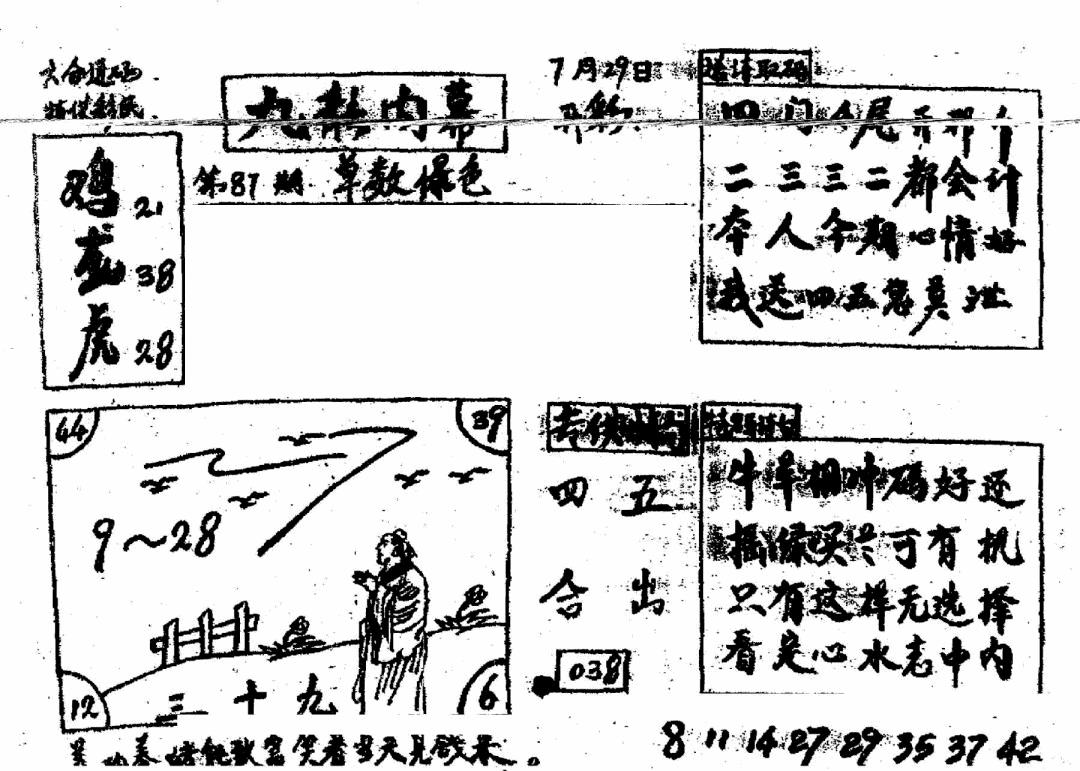 六合通码
九彩内幕
7月29日
开彩
第87期 草数绿色
鸡 21
龙 38
虎 28
取码
四门 尾开那个
二三三二都会计
本人今期心情好
我送四五您莫泄
44
39
9~28
12
三十九
6
四五
合出
038
牛羊相冲码好还
摇绿买兰可有机
只有这样无选择
看定心水志中内
笑看 天 钱来。
8 11 14 27 29 35 37 42